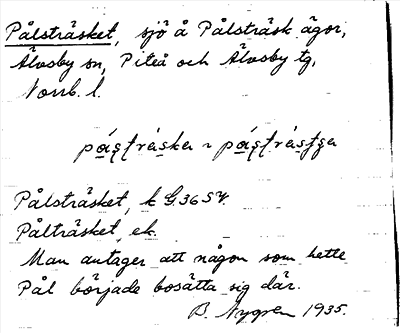 Pålsträsket, sjö å Pålsträsk ägor,
Älvsby sn, Piteå och Älvsby tg,
Norrb. l.
Pålsträsket, k G. 3654.
Pålträsket, ek.
Man antager att någon som hette
Pål började bosätta sig där.
B. Nygren 1935.